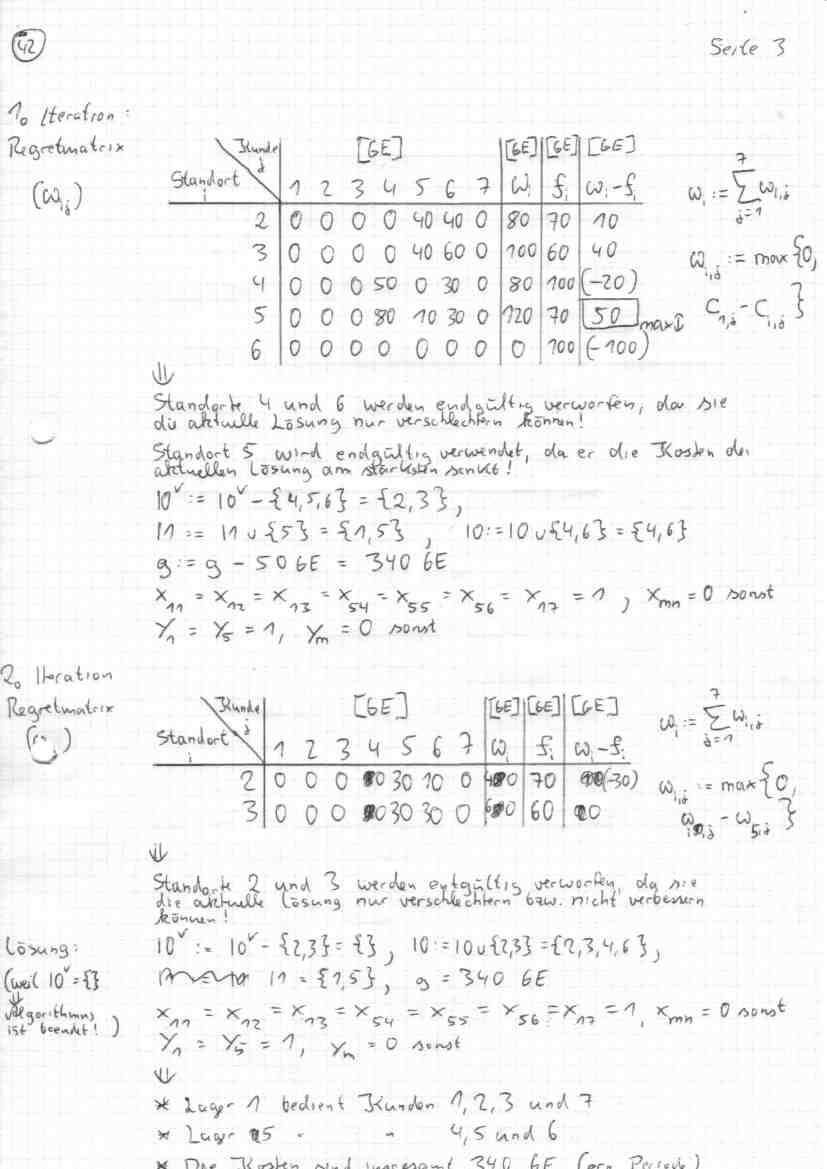 42
Seite 3
1. Iteration:
Regretmatrix
(ω_{ij})
Kunde j [GE] [GE] [GE] [GE]
Standort i 1 2 3 4 5 6 7 ω_i f_i ω_i-f_i
2 0 0 0 0 40 40 0 80 70 10
3 0 0 0 0 40 60 0 100 60 40
4 0 0 0 50 0 30 0 80 100 (-20)
5 0 0 0 80 10 30 0 120 70 50 max!
6 0 0 0 0 0 0 0 0 100 (-100)
ω_i := Σ_{j=1}^{7} ω_{i,j}
ω_{i,j} := max{0,
C_{1,j} - C_{i,j}}
⇓
Standorte 4 und 6 werden endgültig verworfen, da sie
die aktuelle Lösung nur verschlechtern können!
Standort 5 wird endgültig verwendet, da er die Kosten der
aktuellen Lösung am stärksten senkt!
I0^v := I0^v - {4,5,6} = {2,3},
I1 := I1 ∪ {5} = {1,5}, I0 := I0 ∪ {4,6} = {4,6}
g := g - 50 GE = 340 GE
x_{11} = x_{12} = x_{13} = x_{54} = x_{55} = x_{56} = x_{17} = 1, x_{mn} = 0 sonst
y_1 = y_5 = 1, y_m = 0 sonst
2. Iteration
Regretmatrix
Kunde j [GE] [GE] [GE] [GE]
Standort i 1 2 3 4 5 6 7 ω_i f_i ω_i-f_i
2 0 0 0 0 30 10 0 40 70 (-30)
3 0 0 0 0 30 30 0 60 60 0
ω_i := Σ_{j=1}^{7} ω_{i,j}
ω_{i,j} := max{0,
ω_{i,j} - ω_{5,j}}
⇓
Standorte 2 und 3 werden entgültig verworfen, da sie
die aktuelle Lösung nur verschlechtern bzw. nicht verbessern
können!
Lösung:
(weil I0^v = {}
⇓
Algorithmus
ist beendet!)
I0^v := I0^v - {2,3} = {}, I0 := I0 ∪ {2,3} = {2,3,4,6},
I1 = {1,5}, g = 340 GE
x_{11} = x_{12} = x_{13} = x_{54} = x_{55} = x_{56} = x_{17} = 1, x_{mn} = 0 sonst
y_1 = y_5 = 1, y_m = 0 sonst
⇓
* Lager 1 bedient Kunden 1, 2, 3 und 7
* Lager 5 " " 4, 5 und 6
* Die Kosten sind insgesamt 340 GE (pro Periode)